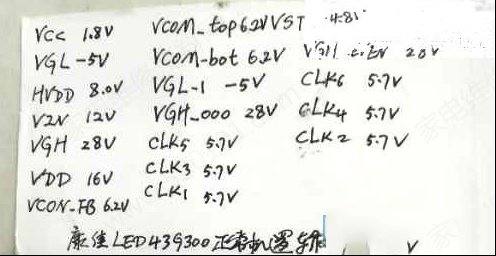 VCC 1.8V
VGL -5V
HVDD 8.0V
V2N 12V
VGH 28V
VDD 16V
VCON-FB 6.2V
VCOM_top 6.2V VST
VCOM-bot 6.2V
VGL-1 -5V
VGH_000 28V
CLK5 5.7V
CLK3 5.7V
CLK1 5.7V
CLK6 5.7V
CLK4 5.7V
CLK2 5.7V
康佳LED43G300正常
V